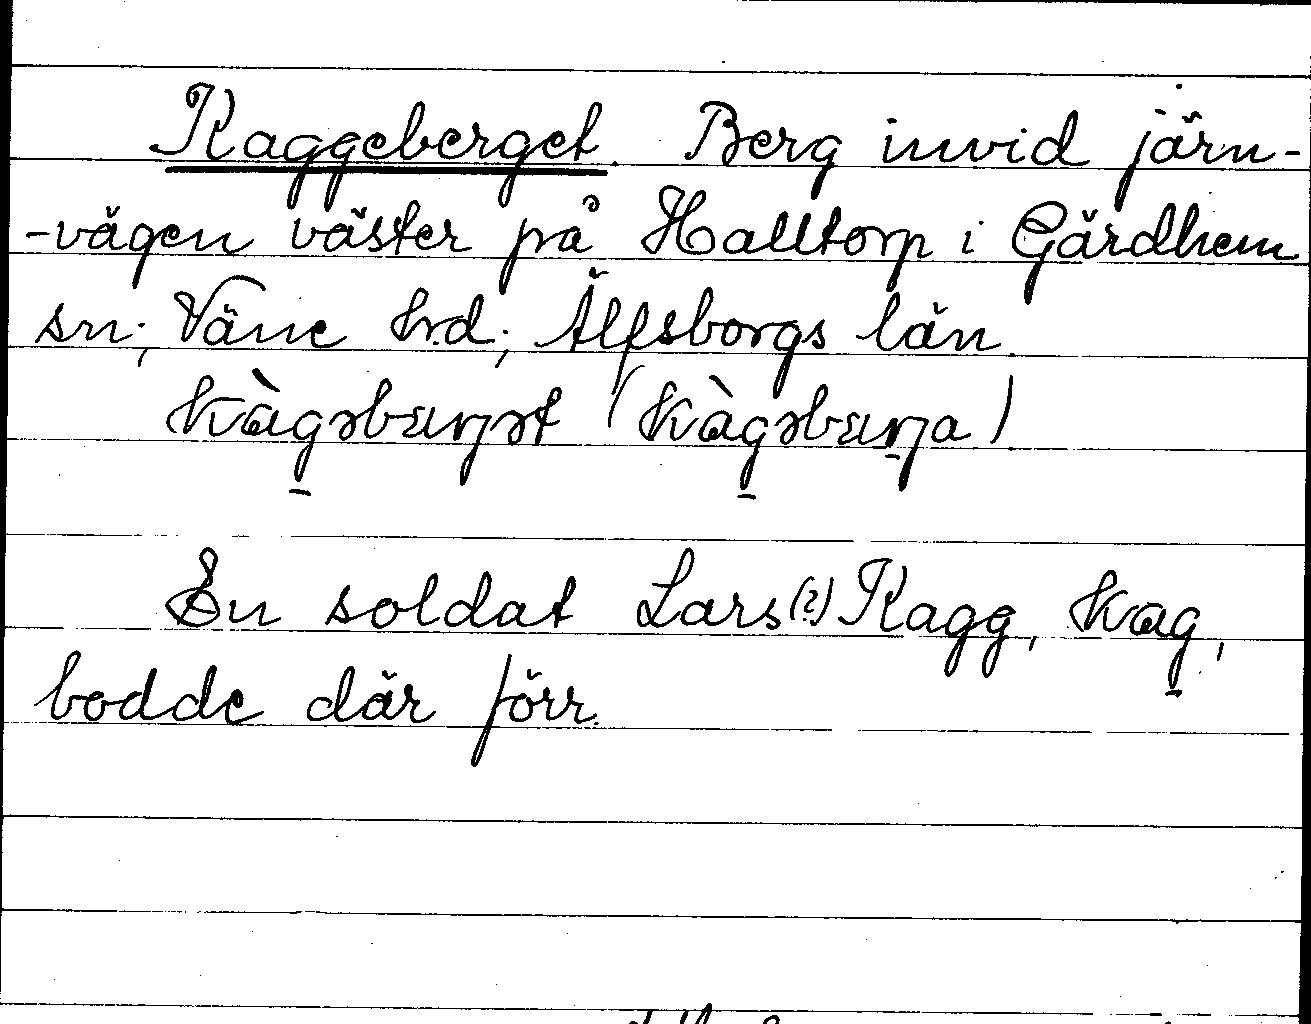 Kaggeberget. Berg invid järn-
-vägen väster på Halltorp i Gärdhem
sn; Väne hrd; Älfsborgs län.
kàg̠əbærjət (kàg̠əbærja)
En soldat Lars(?) Kagg, kag̠,
bodde där förr.